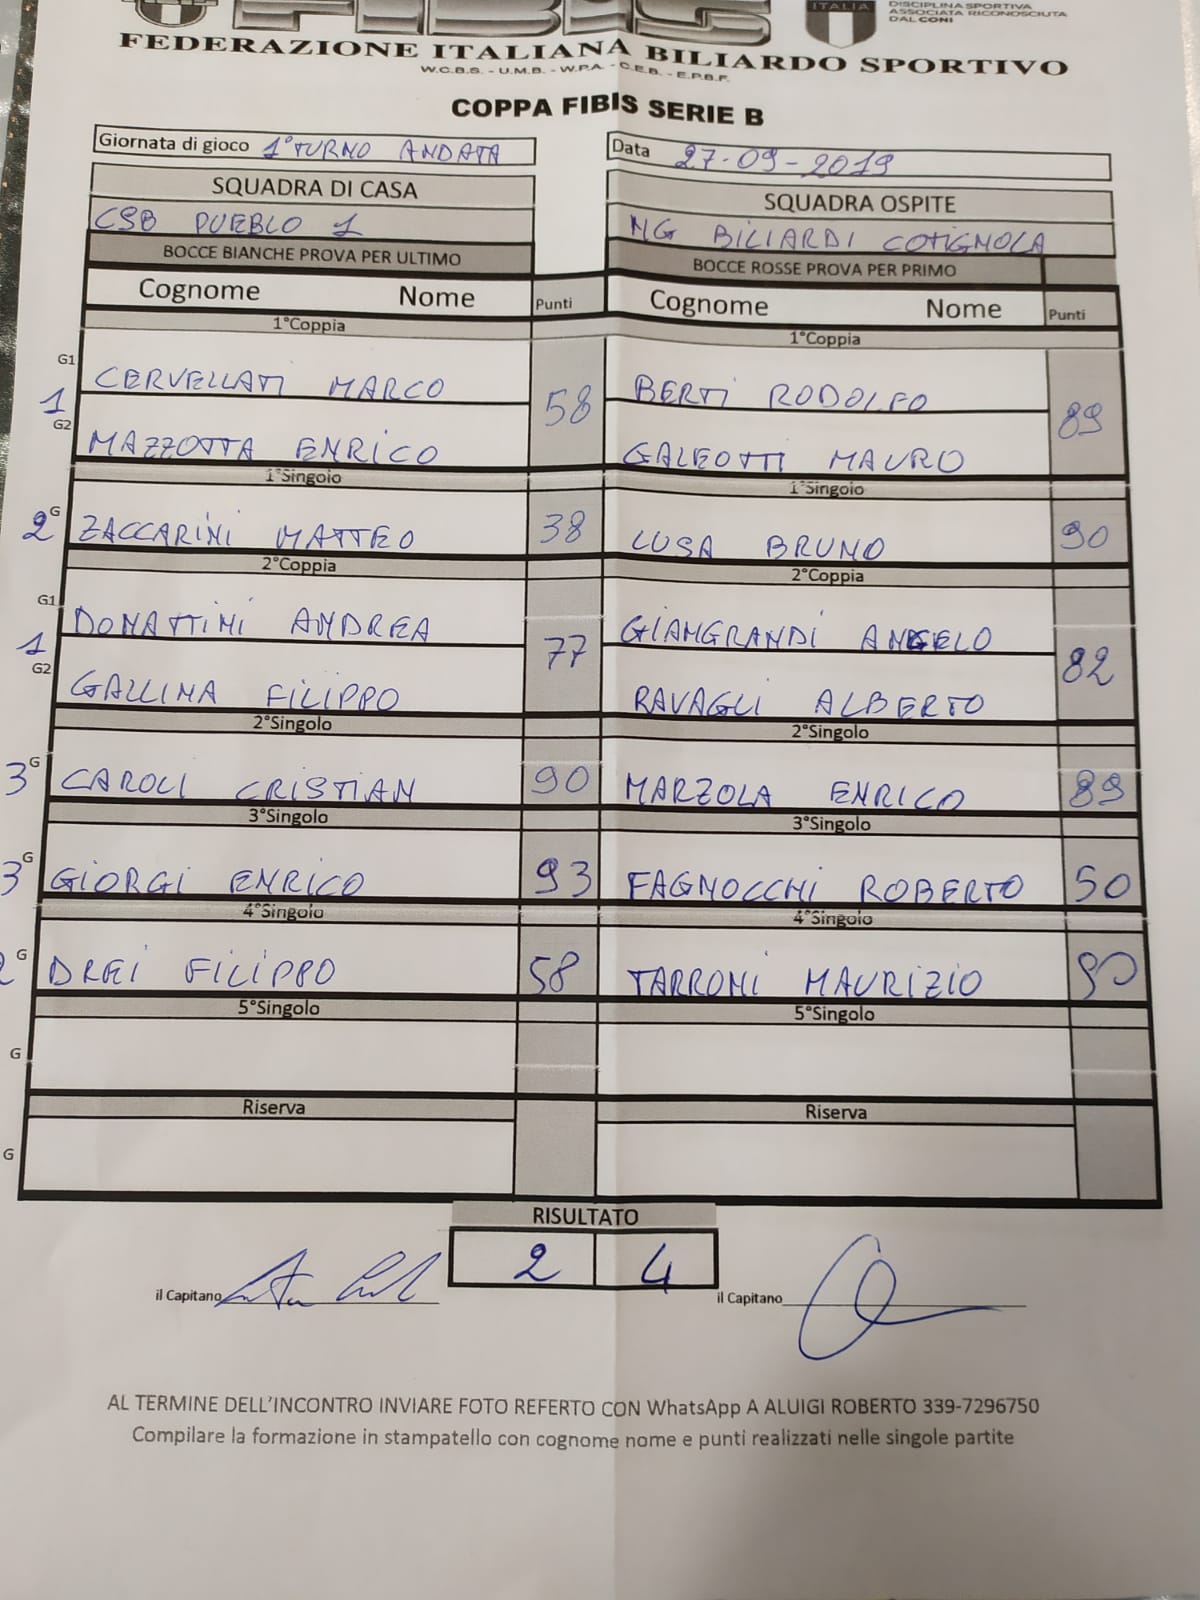 FIBIS
ITALIA
DISCIPLINA SPORTIVA
ASSOCIATA RICONOSCIUTA
DAL CONI
FEDERAZIONE ITALIANA BILIARDO SPORTIVO
W.C.B.S. - U.M.B. - W.P.A. - C.E.B. - E.P.B.F.
COPPA FIBIS SERIE B
Giornata di gioco 1°TURNO ANDATA Data 27-09-2019
SQUADRA DI CASA SQUADRA OSPITE
CSB PUEBLO 1 NG BILIARDI COTIGNOLA
BOCCE BIANCHE PROVA PER ULTIMO BOCCE ROSSE PROVA PER PRIMO
Cognome Nome Punti Cognome Nome Punti
1°Coppia 1°Coppia
G1 CERVELLATI MARCO BERTI RODOLFO
1 58 89
G2 MAZZOTTA ENRICO GALEOTTI MAURO
1°Singolo 1°Singolo
2 G ZACCARINI MATTEO 38 LUSA BRUNO 90
2°Coppia 2°Coppia
G1 DONATTINI ANDREA GIANGRANDI ANGELO
1 77 82
G2 GALLINA FILIPPO RAVAGLI ALBERTO
2°Singolo 2°Singolo
3 G CAROLI CRISTIAN 90 MARZOLA ENRICO 89
3°Singolo 3°Singolo
3 G GIORGI ENRICO 93 FAGNOCCHI ROBERTO 50
4°Singolo 4°Singolo
2 G DREI FILIPPO 58 TARRONI MAURIZIO 90
5°Singolo 5°Singolo
G
Riserva Riserva
G
RISULTATO
2 4
il Capitano il Capitano
AL TERMINE DELL'INCONTRO INVIARE FOTO REFERTO CON WhatsApp A ALUIGI ROBERTO 339-7296750
Compilare la formazione in stampatello con cognome nome e punti realizzati nelle singole partite